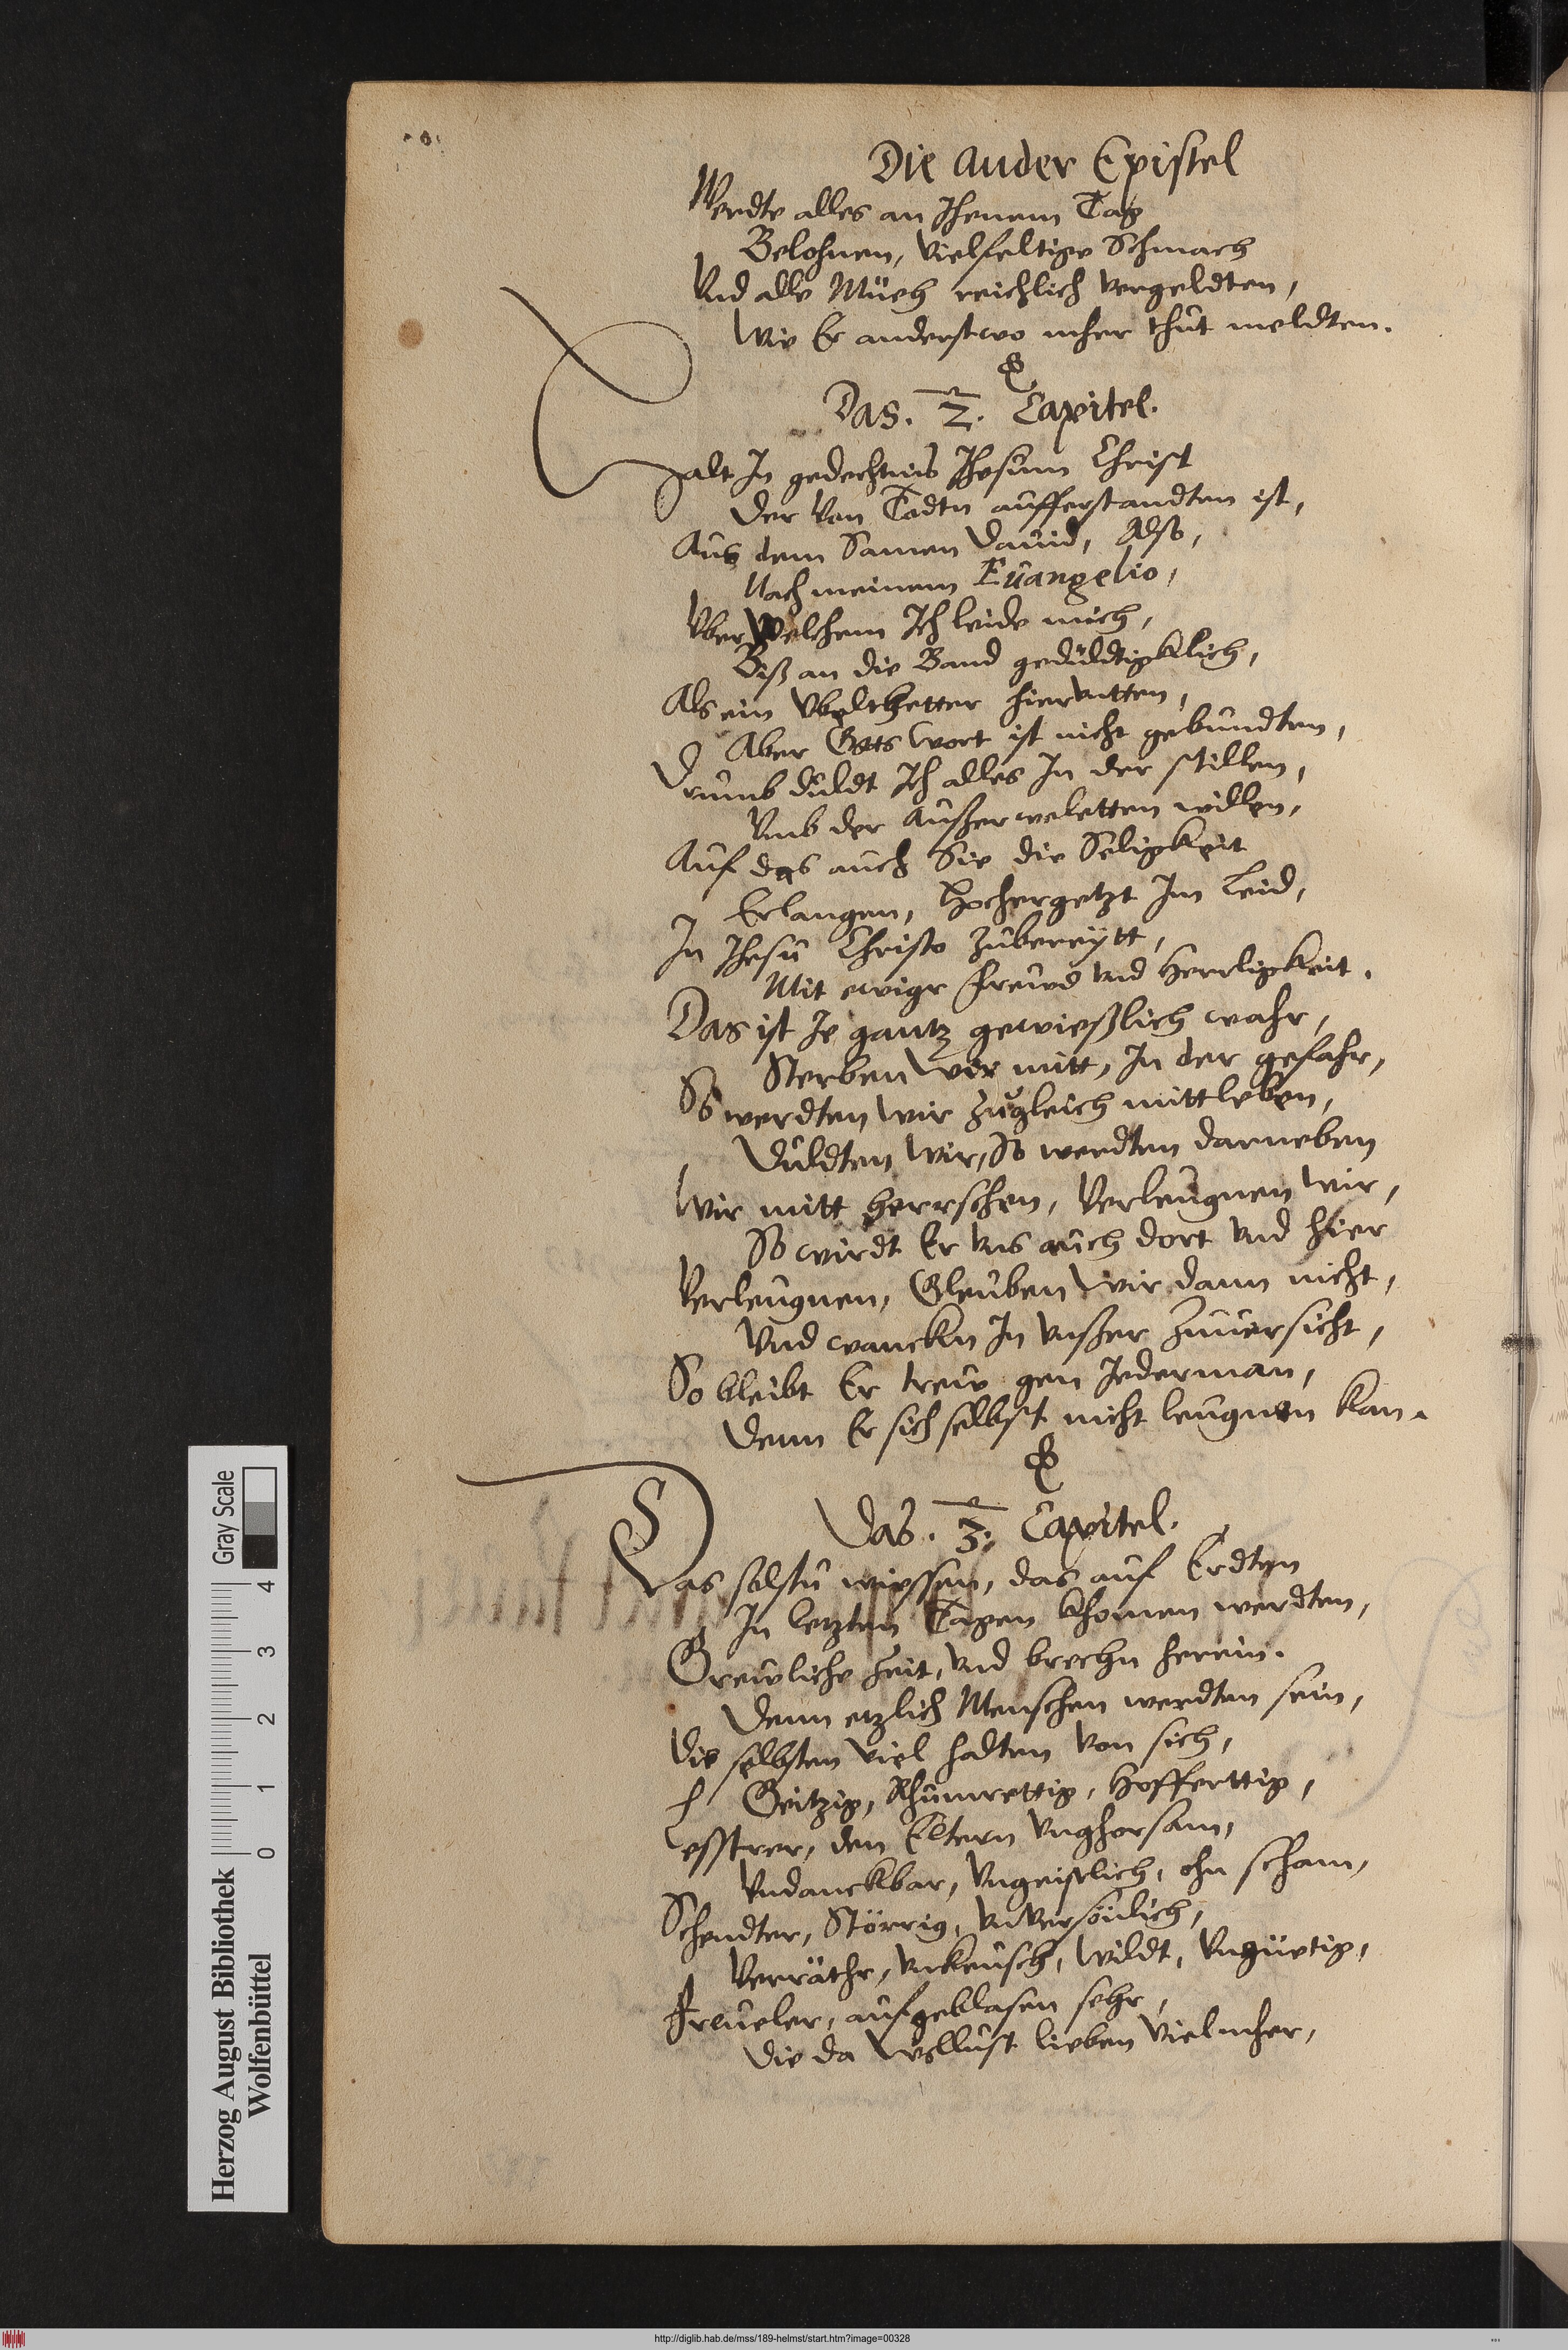 Die Ander Epistel
Werdte alles an Jhenem Tag
Belohnen, Vielfeltige Schmach
Vnd alle Müeh reichlich vergeldten,
Wie Er anderstwo mher thut meldten.
Das. 2. Capitel.
Halt In gedechtnis Jhesum Christ
Der Von Todtn aufferstandten ist,
Aus dem Samen Dauid, Also,
Nach meinem Euangelio,
Vber Welchem Ich leide mich,
Biß an die Band geduldtigklich,
Als ein Vbelthetter hieruntten,
Aber Gots Wort ist nicht gebundten,
Drumb duldt Ich alles In der stillen,
Vmb der Außerweletten willen,
Auf das auch Sie die Seligkeit
Erlangen, Hochergetzt Im Leid,
In Jhesu Christo Zubereytt,
Mit ewiger Freud vnd Herrligkeit.
Das ist Je gantz gewießlich wahr,
Sterben Wir mitt, In der gefahr,
So werdten Wir Zugleich mittleben,
Duldten Wir, So werdten darneben
Wir mitt herrschen, Verleugnen Wir,
So wirdt Er Vns auch dort Vnd hier
Verleugnen, Gleuben Wir dann nicht,
Vnd wanckn In Vnßer Zuuersicht,
So bleibt Er trew gen Jederman,
Denn Er sich selbst nicht leugnen kan.
Das. 3. Capitel.
Das solstu wießen, das auf Erdten
In letzten Tagen khomen werdten,
Grewliche Zeit, Vnd brechn herein.
Denn etzlich Menschen werdten sein,
Die selbsten Viel halten Von sich,
Geitzig, Rhumrettig, Hofferttig,
Lesstrer, den Eltern Vnghorsam,
Vndanckbar, Vngeistlich, ohn scham,
Schendter, Störrig, Vnversönlich,
Verräther, Vnkeusch, Wildt, Vngüetig,
Freueler, aufgeblasen sehr,
Die da Wollust lieben Vielmher,
Herzog August Bibliothek
Wolfenbüttel
0 1 2 3 4
Gray Scale
http://diglib.hab.de/mss/189-helmst/start.htm?image=00328